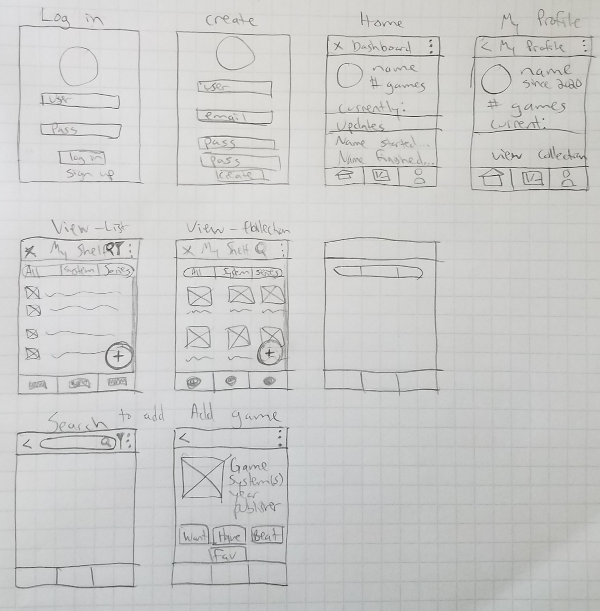 Log in
user
Pass
log in
Sign up
create
user
email
Pass
Pass
create
Home
x Dashboard
name
# games
Currently:
Updates
Name started...
Name finished...
My Profile
< My Profile
name
since 2020
# games
Current:
View Collection
View - List
x My Shelf
All System Series
+
View - Collection
x My Shelf
All System Series
+
Search to add
<
Add game
<
Game
System(s)
year
publisher
Want Have Beat
Fav